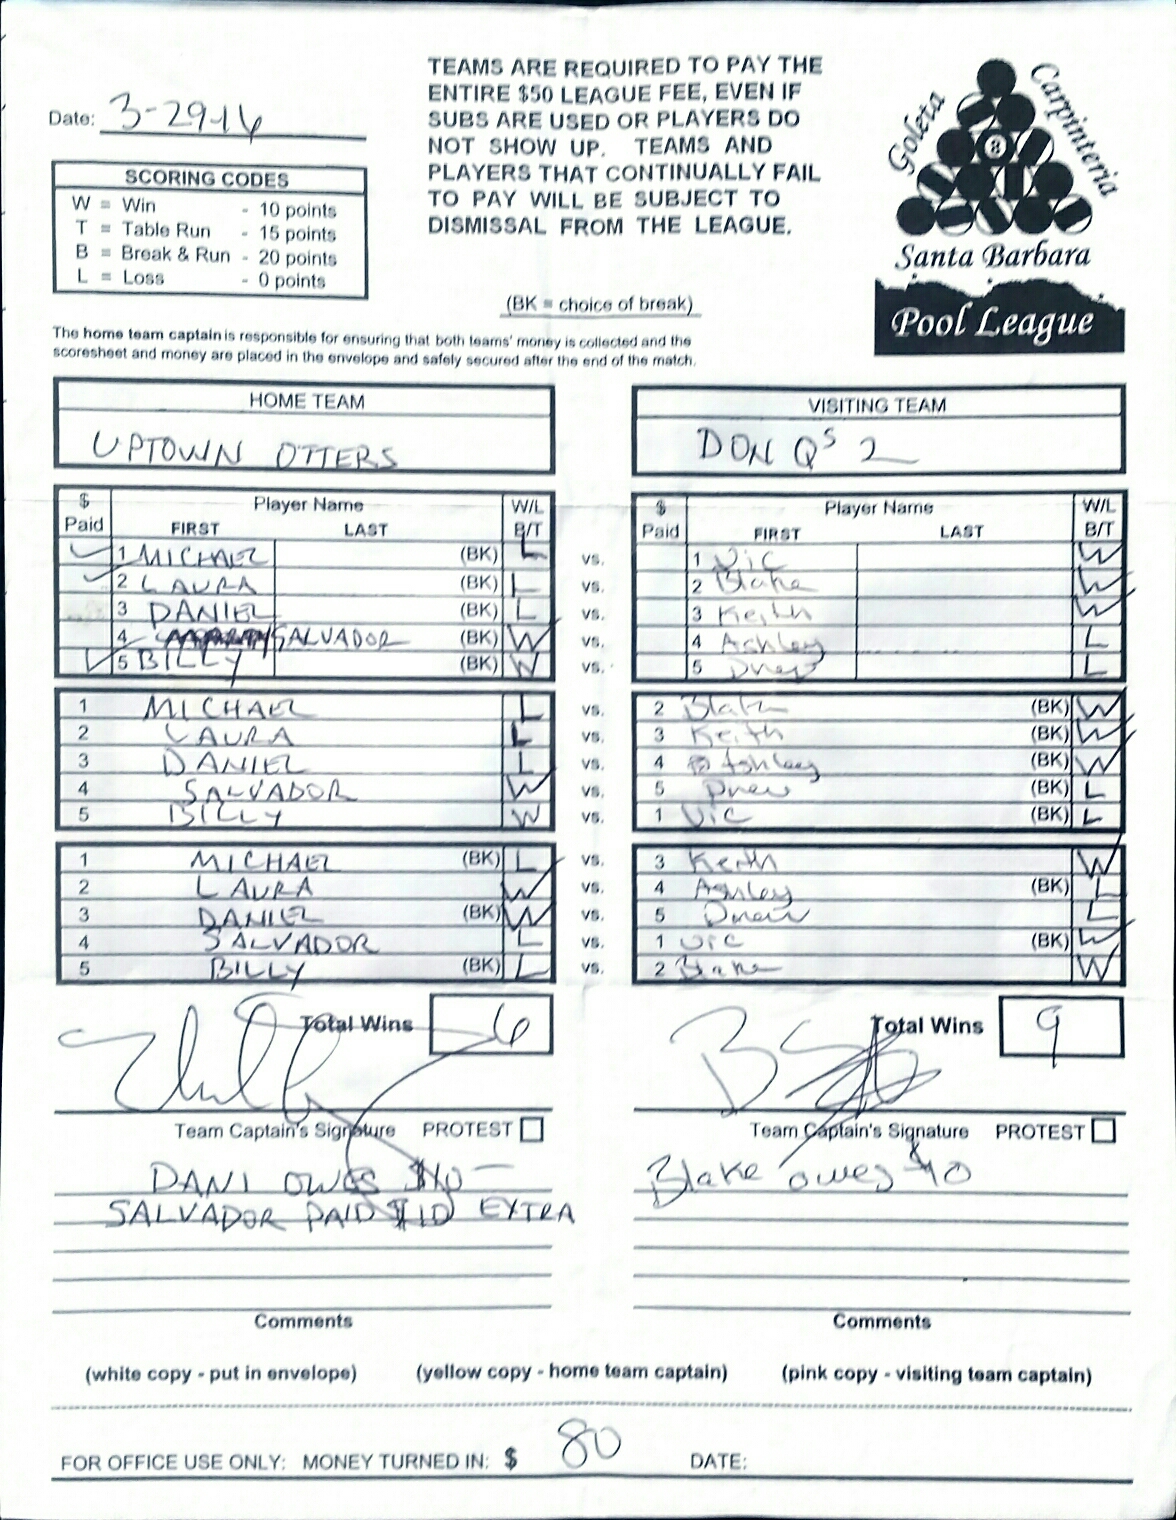 Date: 3-29-16
TEAMS ARE REQUIRED TO PAY THE
ENTIRE $50 LEAGUE FEE, EVEN IF
SUBS ARE USED OR PLAYERS DO
NOT SHOW UP. TEAMS AND
PLAYERS THAT CONTINUALLY FAIL
TO PAY WILL BE SUBJECT TO
DISMISSAL FROM THE LEAGUE.
Goleta Carpinteria
8
Santa Barbara
Pool League
SCORING CODES
W = Win - 10 points
T = Table Run - 15 points
B = Break & Run - 20 points
L = Loss - 0 points
(BK = choice of break)
The home team captain is responsible for ensuring that both teams' money is collected and the
scoresheet and money are placed in the envelope and safely secured after the end of the match.
HOME TEAM VISITING TEAM
UPTOWN OTTERS DON Q'S 2
$ Player Name W/L $ Player Name W/L
Paid FIRST LAST B/T Paid FIRST LAST B/T
1 MICHAEL (BK) L vs. 1 Vic W
2 LAURA (BK) L vs. 2 Blake W
3 DANIEL (BK) L vs. 3 Keith W
4 SALVADOR (BK) W vs. 4 Ashley L
5 BILLY (BK) W vs. 5 Drew L
1 MICHAEL L vs. 2 Blake (BK) W
2 LAURA L vs. 3 Keith (BK) W
3 DANIEL L vs. 4 Ashley (BK) W
4 SALVADOR W vs. 5 Drew (BK) L
5 BILLY W vs. 1 Vic (BK) L
1 MICHAEL (BK) L vs. 3 Keith W
2 LAURA W vs. 4 Ashley (BK) L
3 DANIEL (BK) W vs. 5 Drew L
4 SALVADOR L vs. 1 Vic (BK) W
5 BILLY (BK) L vs. 2 Blake W
Total Wins 6 Total Wins 9
Team Captain's Signature PROTEST Team Captain's Signature PROTEST
DANI OWES $10 — Blake owes $10
SALVADOR PAID $10 EXTRA
Comments Comments
(white copy - put in envelope) (yellow copy - home team captain) (pink copy - visiting team captain)
FOR OFFICE USE ONLY: MONEY TURNED IN: $ 80 DATE: